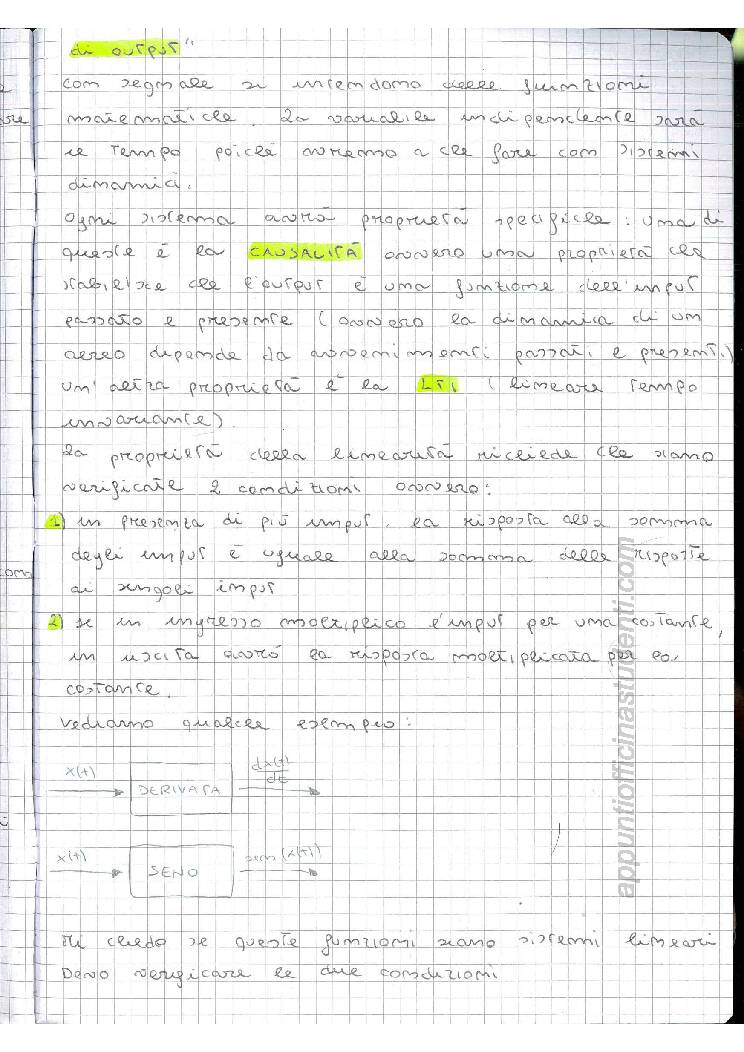 di output"
Con segnale si intendono delle funzioni
matematiche. La variabile indipendente sarà
il tempo poiché avremo a che fare con sistemi
dinamici.
Ogni sistema avrà proprietà specifiche: una di
queste è la CAUSALITÀ ovvero una proprietà che
stabilisce che l'output è una funzione dell'input
passato e presente (ovvero la dinamica di un
aereo dipende da avvenimenti passati e presenti)
un'altra proprietà è la LTI (lineare tempo
invariante)
La proprietà della linearità richiede che siano
verificate 2 condizioni ovvero:
1) in presenza di più input, la risposta alla somma
degli input è uguale alla somma delle risposte
ai singoli input
2) se in ingresso moltiplico l'input per una costante,
in uscita avrò la risposta moltiplicata per la
costante.
Vediamo qualche esempio:
x(t) DERIVATA dx(t)/dt
x(t) SENO sen(x(t))
Mi chiedo se queste funzioni siano sistemi lineari
Devo verificare le due condizioni
appuntiofficinastudenti.com